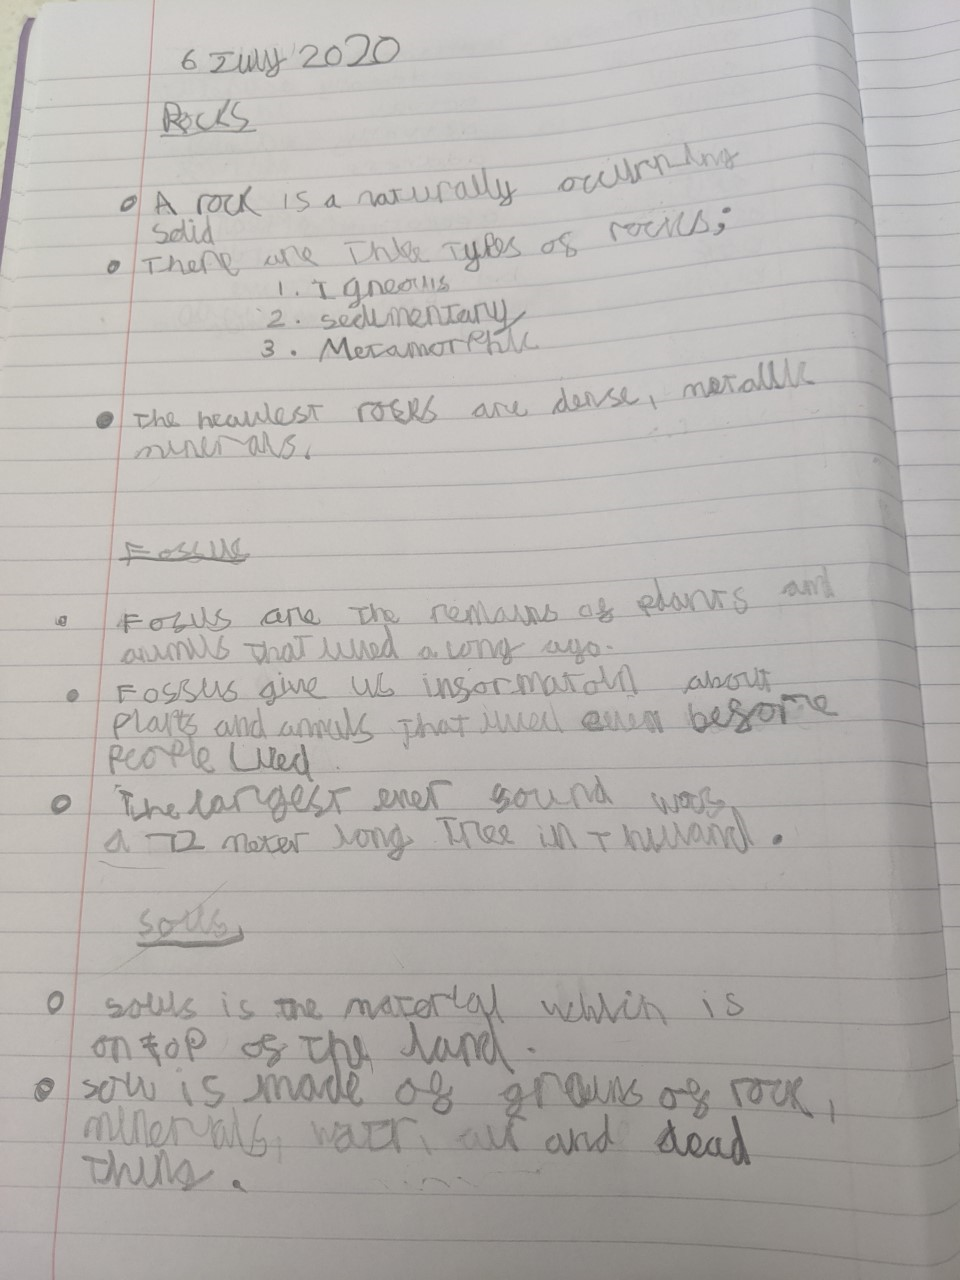 6 July 2020
Rocks
A rock is a naturally occurning
solid
There are three types of rocks;
1. Igneous
2. sedimentary
3. Metamorphic
The heaviest rocks are dense, metallic
minerals.
Fossils
Fossils are the remains of plants and
animls that lived a long ago.
Fossils give us informatoin about
plants and animls that lived even before
people lived.
The largest ever found was
a 72 meter long tree in Thailand.
Soils
soils is the material which is
on top of the land.
soil is made of grains of rock,
minerals, watr, air and dead
thins.